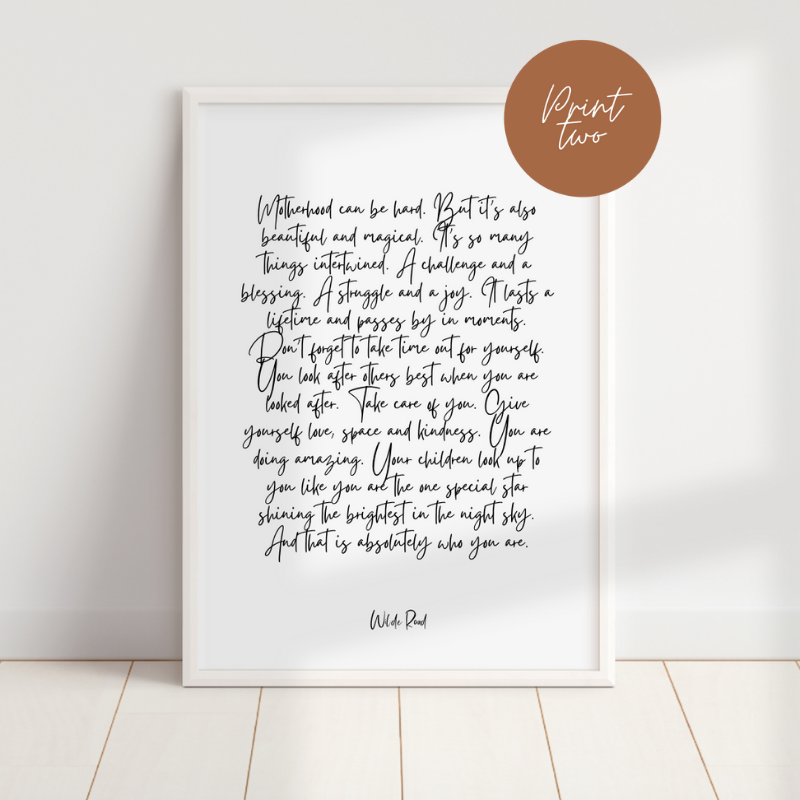 Print
two
Motherhood can be hard. But it's also
beautiful and magical. It's so many
things intertwined. A challenge and a
blessing. A struggle and a joy. It lasts a
lifetime and passes by in moments.
Don't forget to take time out for yourself.
You look after others best when you are
looked after. Take care of you. Give
yourself love, space and kindness. You are
doing amazing. Your children look up to
you like you are the one special star
shining the brightest in the night sky.
And that is absolutely who you are.
Wilde Road